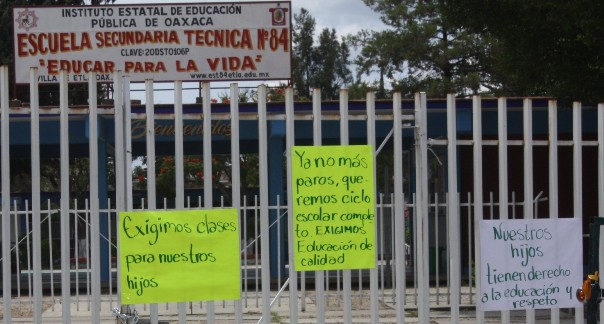 INSTITUTO ESTATAL DE EDUCACIÓN
PÚBLICA DE OAXACA
ESCUELA SECUNDARIA TECNICA Nº84
CLAVE:20DST0106P
"EDUCAR PARA LA VIDA"
VILLA ETLA OAX.
www.est84etla.edu.mx
Bienvenidos
Exigimos clases
para nuestros
hijos
Ya no más
paros, que-
remos ciclo
escolar comple
to. EXIGIMOS
Educación de
calidad
Nuestros
hijos
tienen derecho
a la educación y
respeto